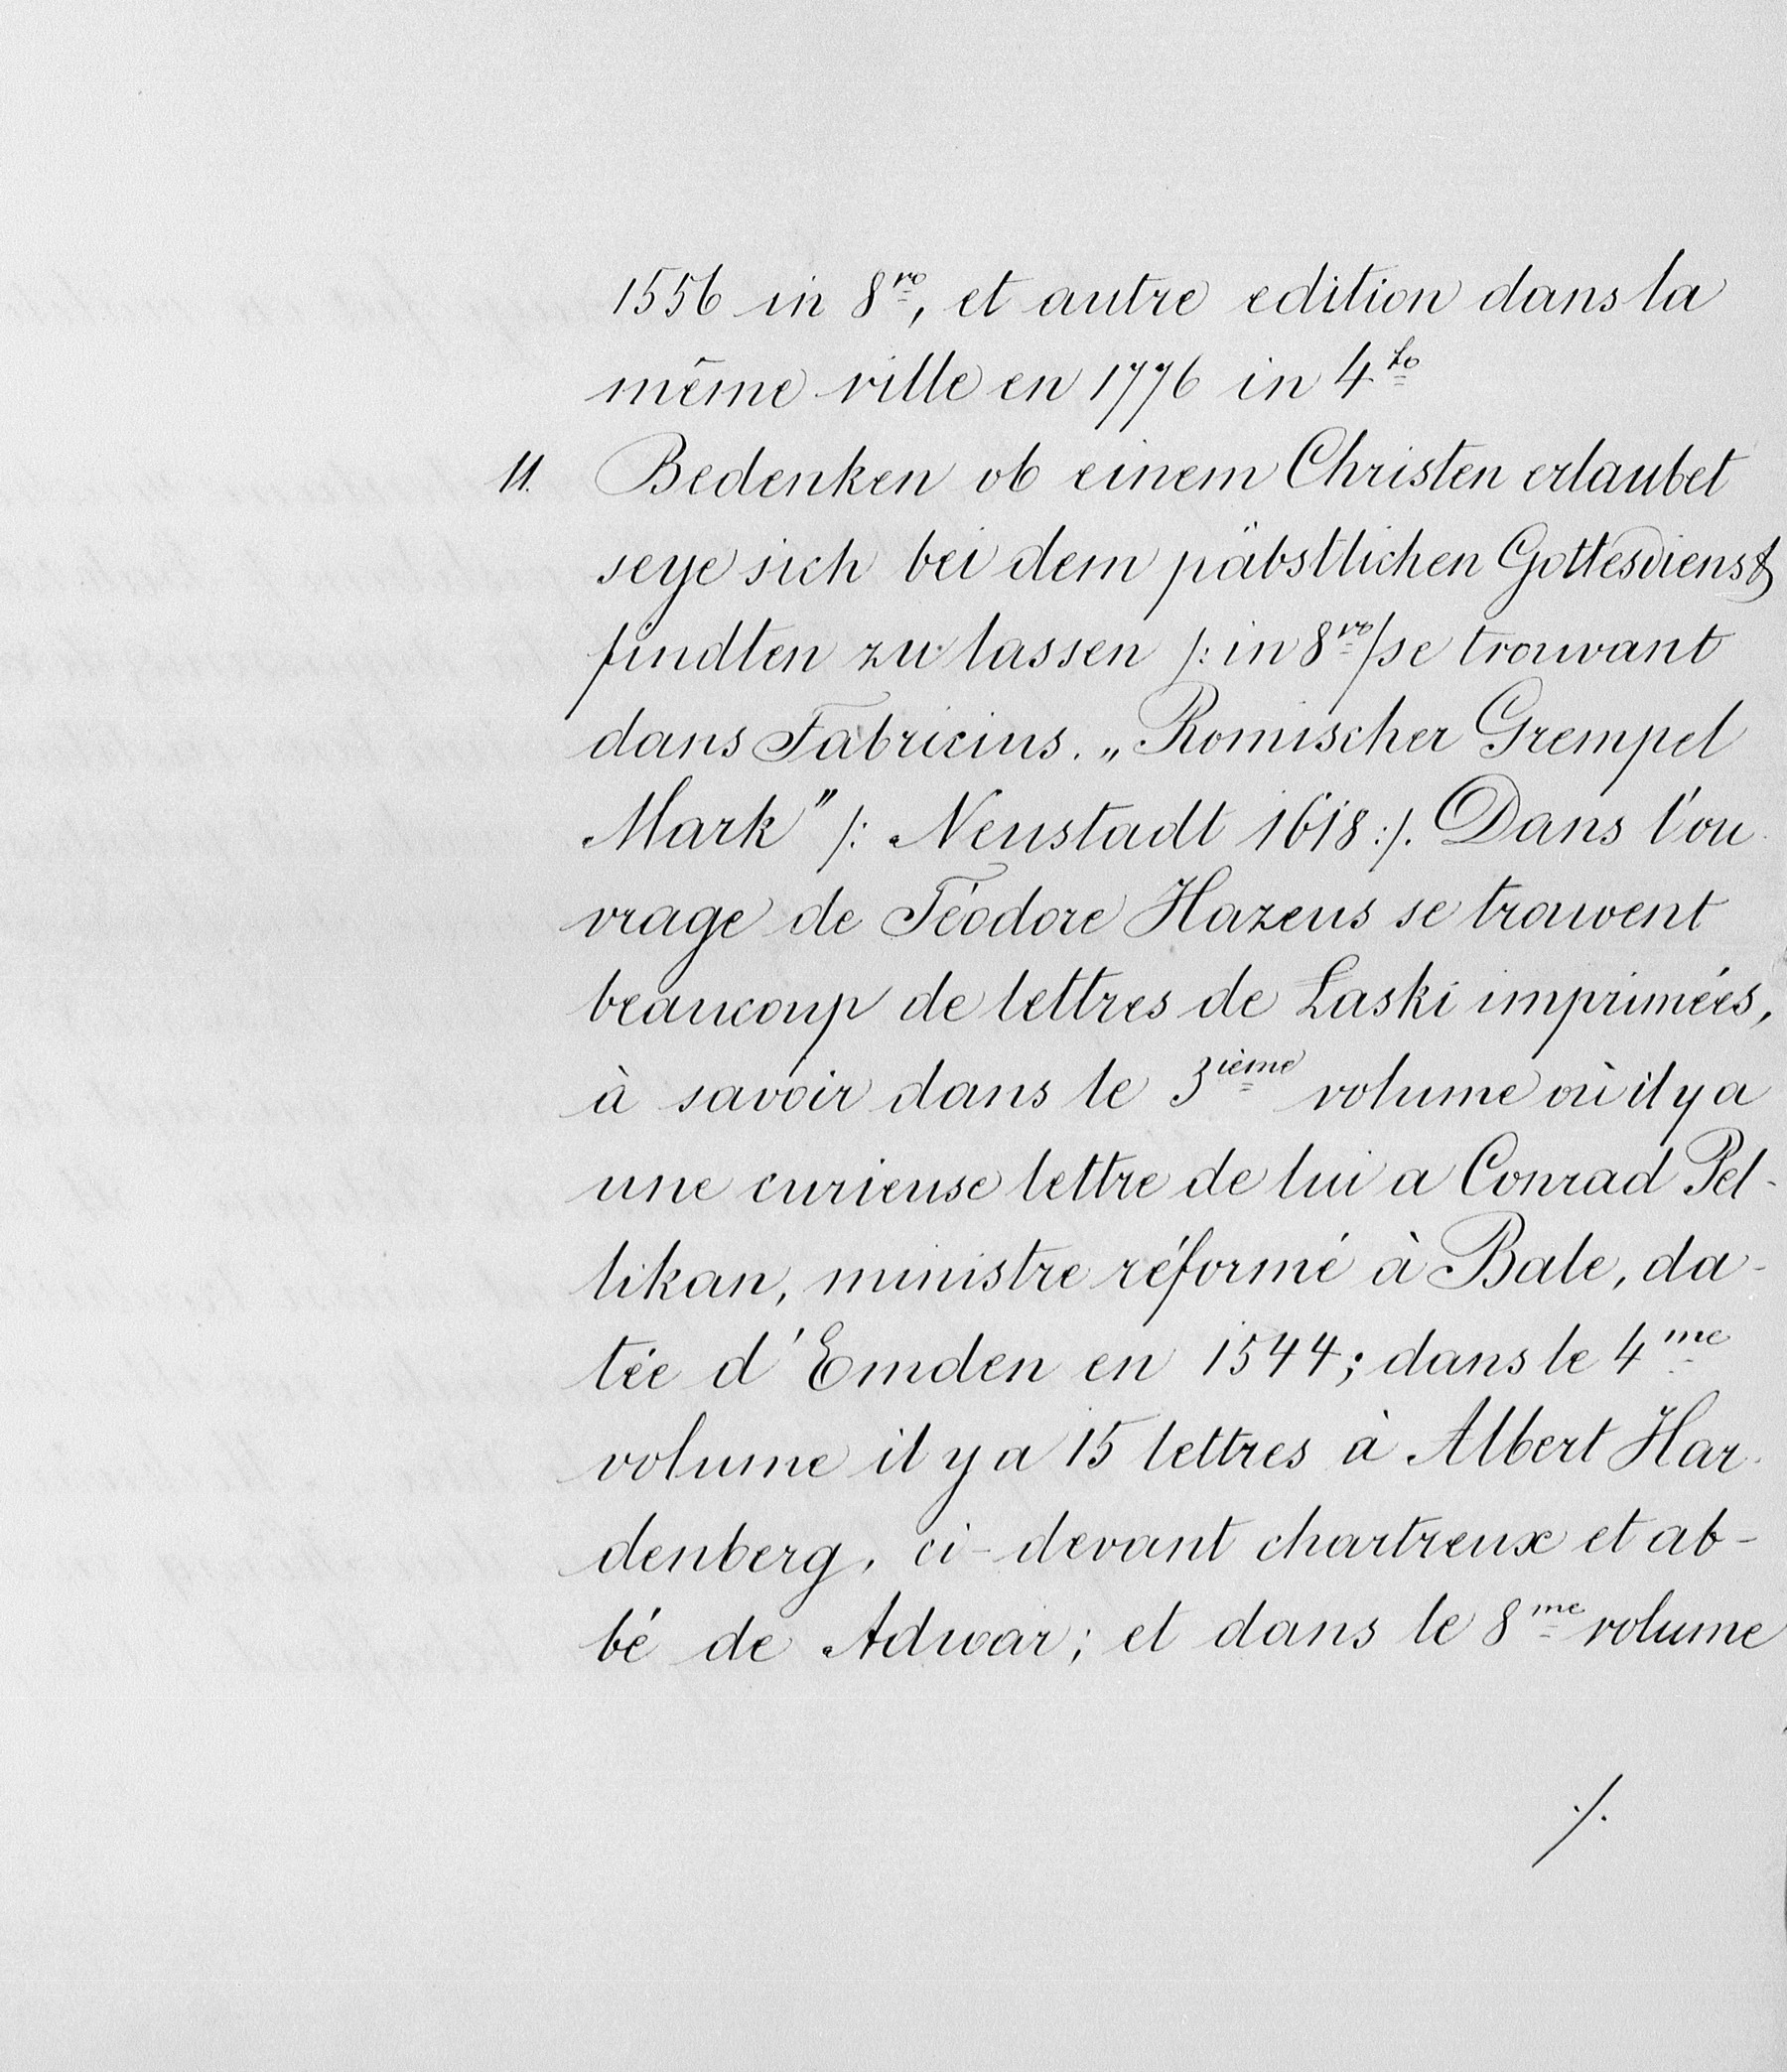 1556 in 8vo, et autre edition dans la
même ville en 1776 in 4to
11. Bedenken ob einem Christen erlaubet
seye sich bei dem päbstlichen Gottesdienst
findten zu lassen /: in 8vo / se trouvant
dans Fabricius. „Romischer Grempel
Mark" /: Neustadt 1618 :/. Dans l'ou
vrage de Téodore Hazeus se trouvent
beaucoup de lettres de Laski imprimées,
à savoir dans le 3ième volume où il y a
une curieuse lettre de lui a Conrad Pel-
likan, ministre réformé à Bale, da-
tée d'Emden en 1544; dans le 4me
volume il y a 15 lettres à Albert Har-
denberg, ci-devant chartreux et ab-
bé de Adwar; et dans le 8me volume
./.